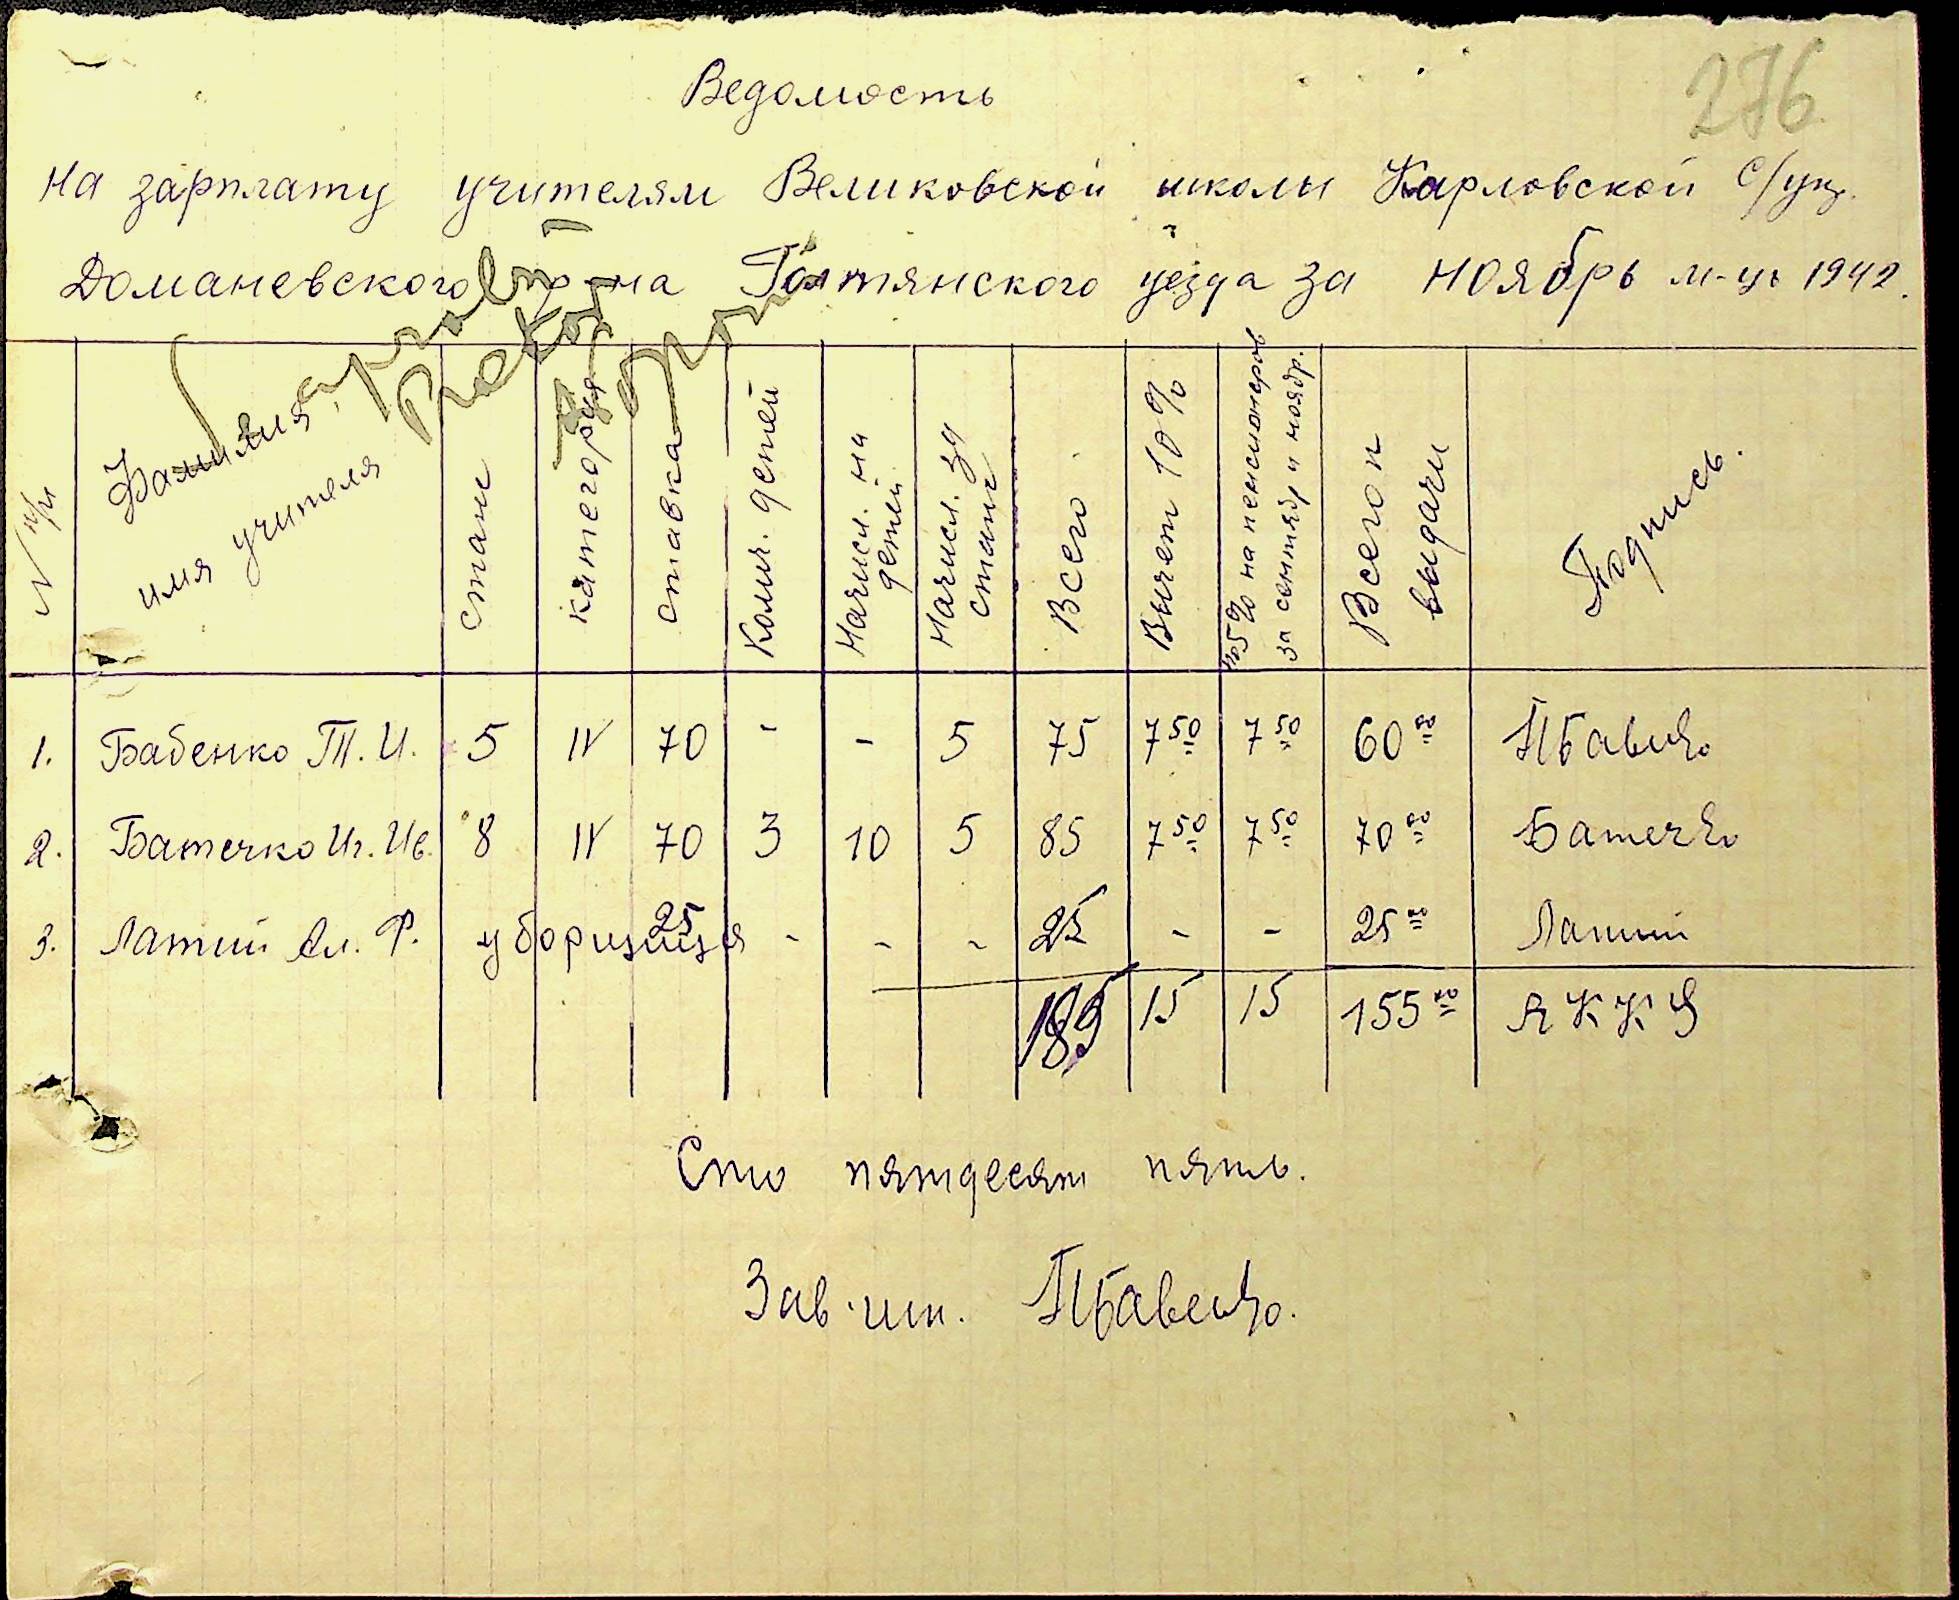 276
Ведомость
На зарплату учителям Великовской школы Карловской с/уч.
Доманевского р-на Голтянского уезда за ноябрь м-ць 1942.
N п/п | Фамилия, имя учителя | стаж | категория | ставка | Колич. детей | Начисл. на детей | Начисл. за стаж | Всего | Вычет 10% | по 5% на пенсионеров за сентябр и ноябр. | Всего к выдачи | Подпись.
1. Бабенко Т. И. 5 IV 70 - - 5 75 7 50 7 50 60 00
2. Батечко Иг. Ив. 8 IV 70 3 10 5 85 7 50 7 50 70 00 Батечко
3. Латий Ал. Ф. уборщица 25 - - - 25 - - 25 00 Латий
185 15 15 155 00
Сто пятдесят пять.
Зав. шк.